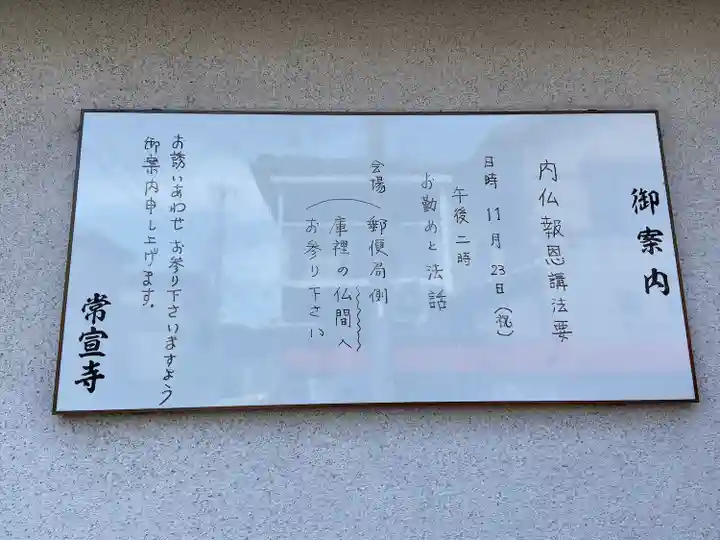 御案内
内仏報恩講法要
日時 11月23日(祝)
午後二時
お勤めと法話
会場(郵便局側
庫裡の仏間へ
お参り下さい)
お誘いあわせお参り下さいますよう
御案内申し上げます。
常宣寺